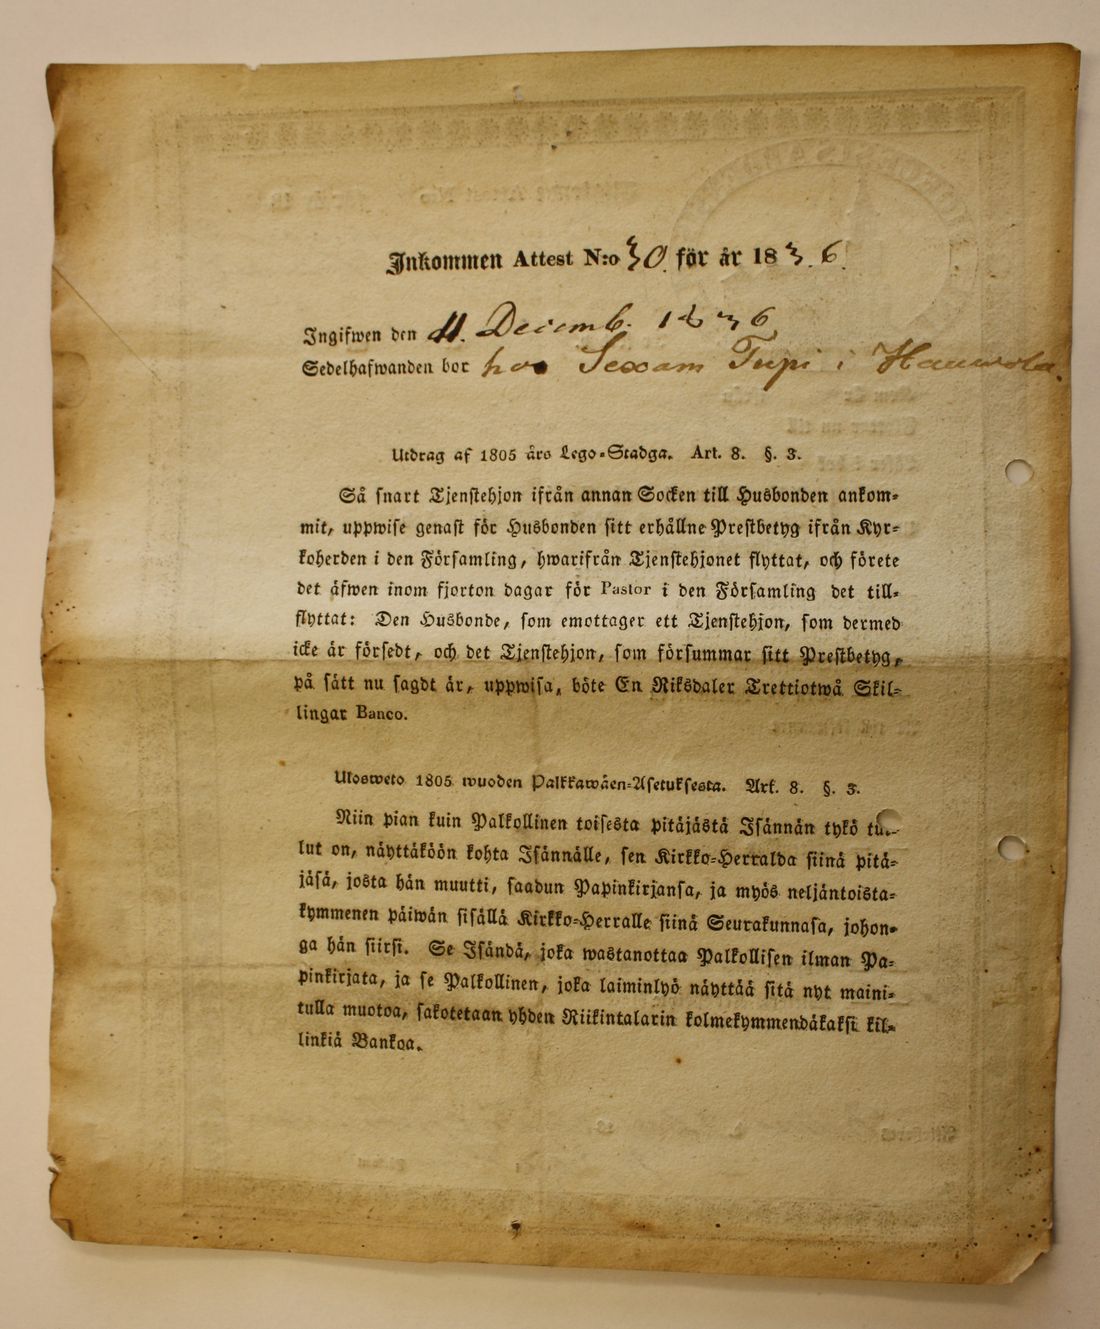 Inkommen Attest N:o 30. för år 1836.
Ingifwen den 11. Decemb. 1836
Sedelhafwanden bor hos Sexam Tupi i
Utdrag af 1805 års Lego-Stadga. Art. 8. §. 3.
Så snart Tjenstehjon ifrån annan Socken till Husbonden ankom-
mit, uppwise genast för Husbonden sitt erhållne Prestbetyg ifrån Kyr-
koherden i den Församling, hwarifrån Tjenstehjonet flyttat, och förete
det äfwen inom fjorton dagar för Pastor i den Församling det till-
flyttat: Den Husbonde, som emottager ett Tjenstehjon, som dermed
icke är försedt, och det Tjenstehjon, som försummar sitt Prestbetyg,
på sätt nu sagdt är, uppwisa, böte En Riksdaler Trettiotwå Skil-
lingar Banco.
Ulosweto 1805 wuoden Palkkawäen-Asetuksesta. Art. 8. §. 3.
Niin pian kuin Palkollinen toisesta pitäjästä Isännän tykö tul-
lut on, näyttäköön kohta Isännälle, sen Kirkko-Herralda siinä pitä-
jäsä, josta hän muutti, saadun Papinkirjansa, ja myös neljäntoista-
kymmenen päiwän sisällä Kirkko-Herralle siinä Seurakunnasa, johon-
ga hän siirsi. Se Isändä, joka wastanottaa Palkollisen ilman Pa-
pinkirjata, ja se Palkollinen, joka laiminlyö näyttää sitä nyt maini-
tulla muotoa, sakotetaan yhden Riikintalarin kolmekymmendäkaksi kil-
linkiä Bankoa.